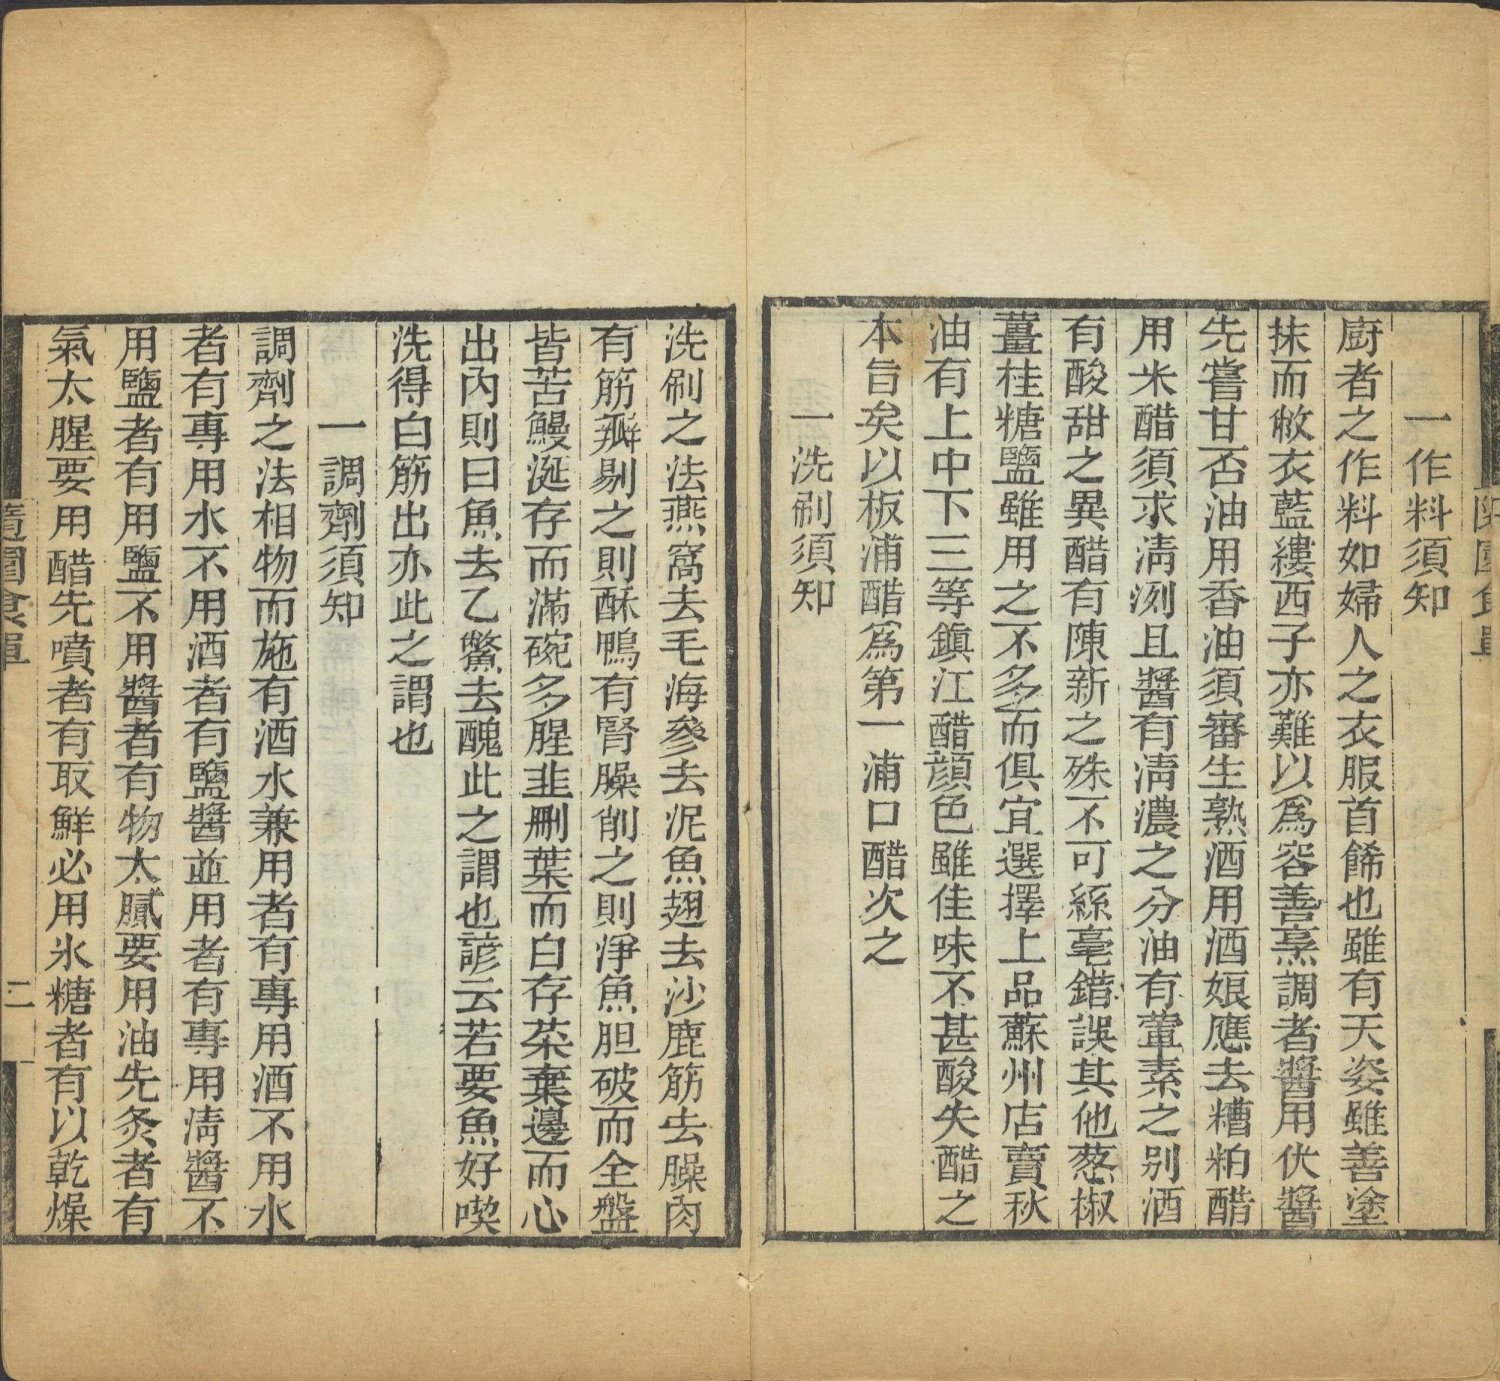 一作料須知
廚者之作料如婦人之衣服首餙也雖有天姿雖善塗
抹而敝衣藍縷西子亦難以爲容善烹調者醬用伏醬
先嘗甘否油用香油須審生熟酒用酒娘應去糟粕醋
用米醋須求清洌且醬有清濃之分油有葷素之别酒
有酸甜之異醋有陳新之殊不可絲毫錯誤其他葱椒
薑桂糖鹽雖用之不多而俱宜選擇上品蘇州店賣秋
油有上中下三等鎮江醋顔色雖佳味不甚酸失醋之
本旨矣以板浦醋爲第一浦口醋次之
一洗刷須知
洗刷之法燕窩去毛海參去泥魚翅去沙鹿筋去臊肉
有筋瓣剔之則酥鴨有腎臊削之則淨魚胆破而全盤
皆苦鰻涎存而滿碗多腥韭刪葉而白存菜棄邊而心
出內則曰魚去乙鱉去醜此之謂也諺云若要魚好喫
洗得白筋出亦此之謂也
一調劑須知
調劑之法相物而施有酒水兼用者有專用酒不用水
者有專用水不用酒者有鹽醬並用者有專用清醬不
用鹽者有用鹽不用醬者有物太膩要用油先炙者有
氣太腥要用醋先噴者有取鮮必用氷糖者有以乾燥
隨園食單
二